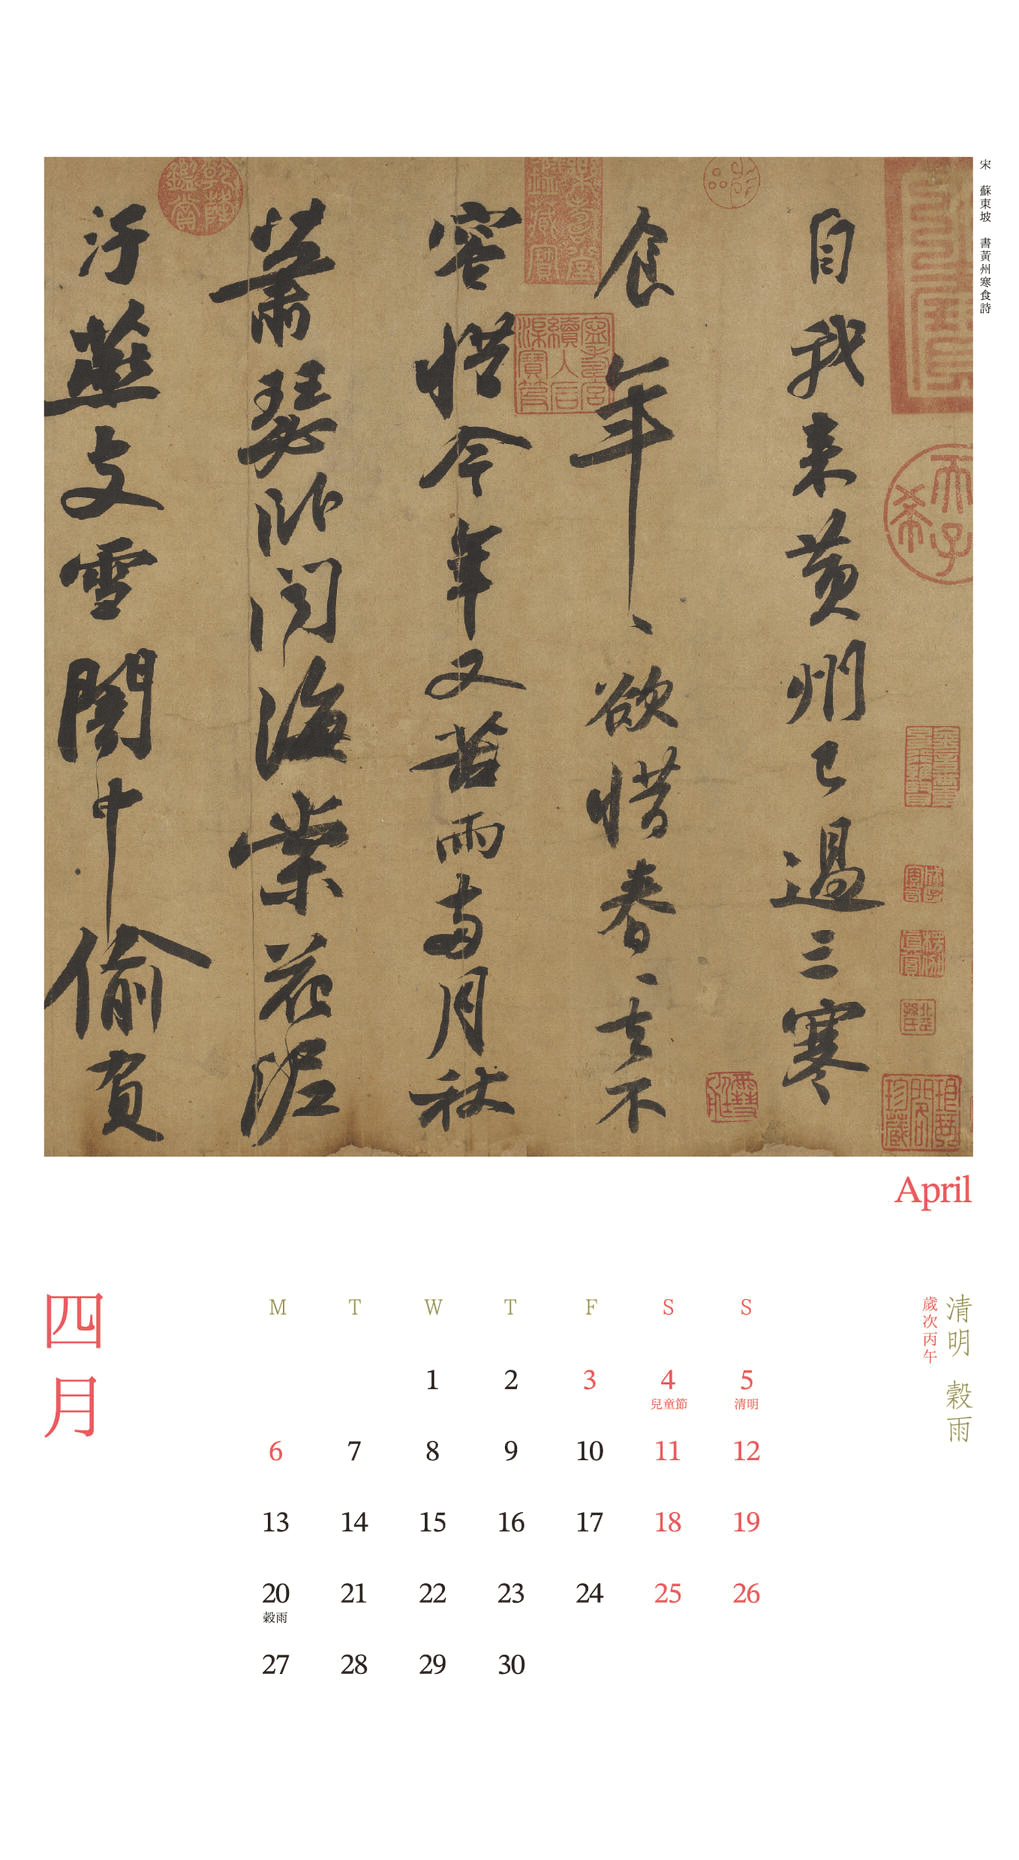 宋 蘇東坡 書黃州寒食詩
自我来黃州已過三寒
食年、欲惜春、去不
容惜今年又苦雨兩月秋
蕭瑟卧聞海棠花泥
汙燕支雪闇中偷負
天子
April
四月
清明 穀雨
歲次丙午
M T W T F S S
1 2 3 4 5
兒童節 清明
6 7 8 9 10 11 12
13 14 15 16 17 18 19
20 21 22 23 24 25 26
穀雨
27 28 29 30